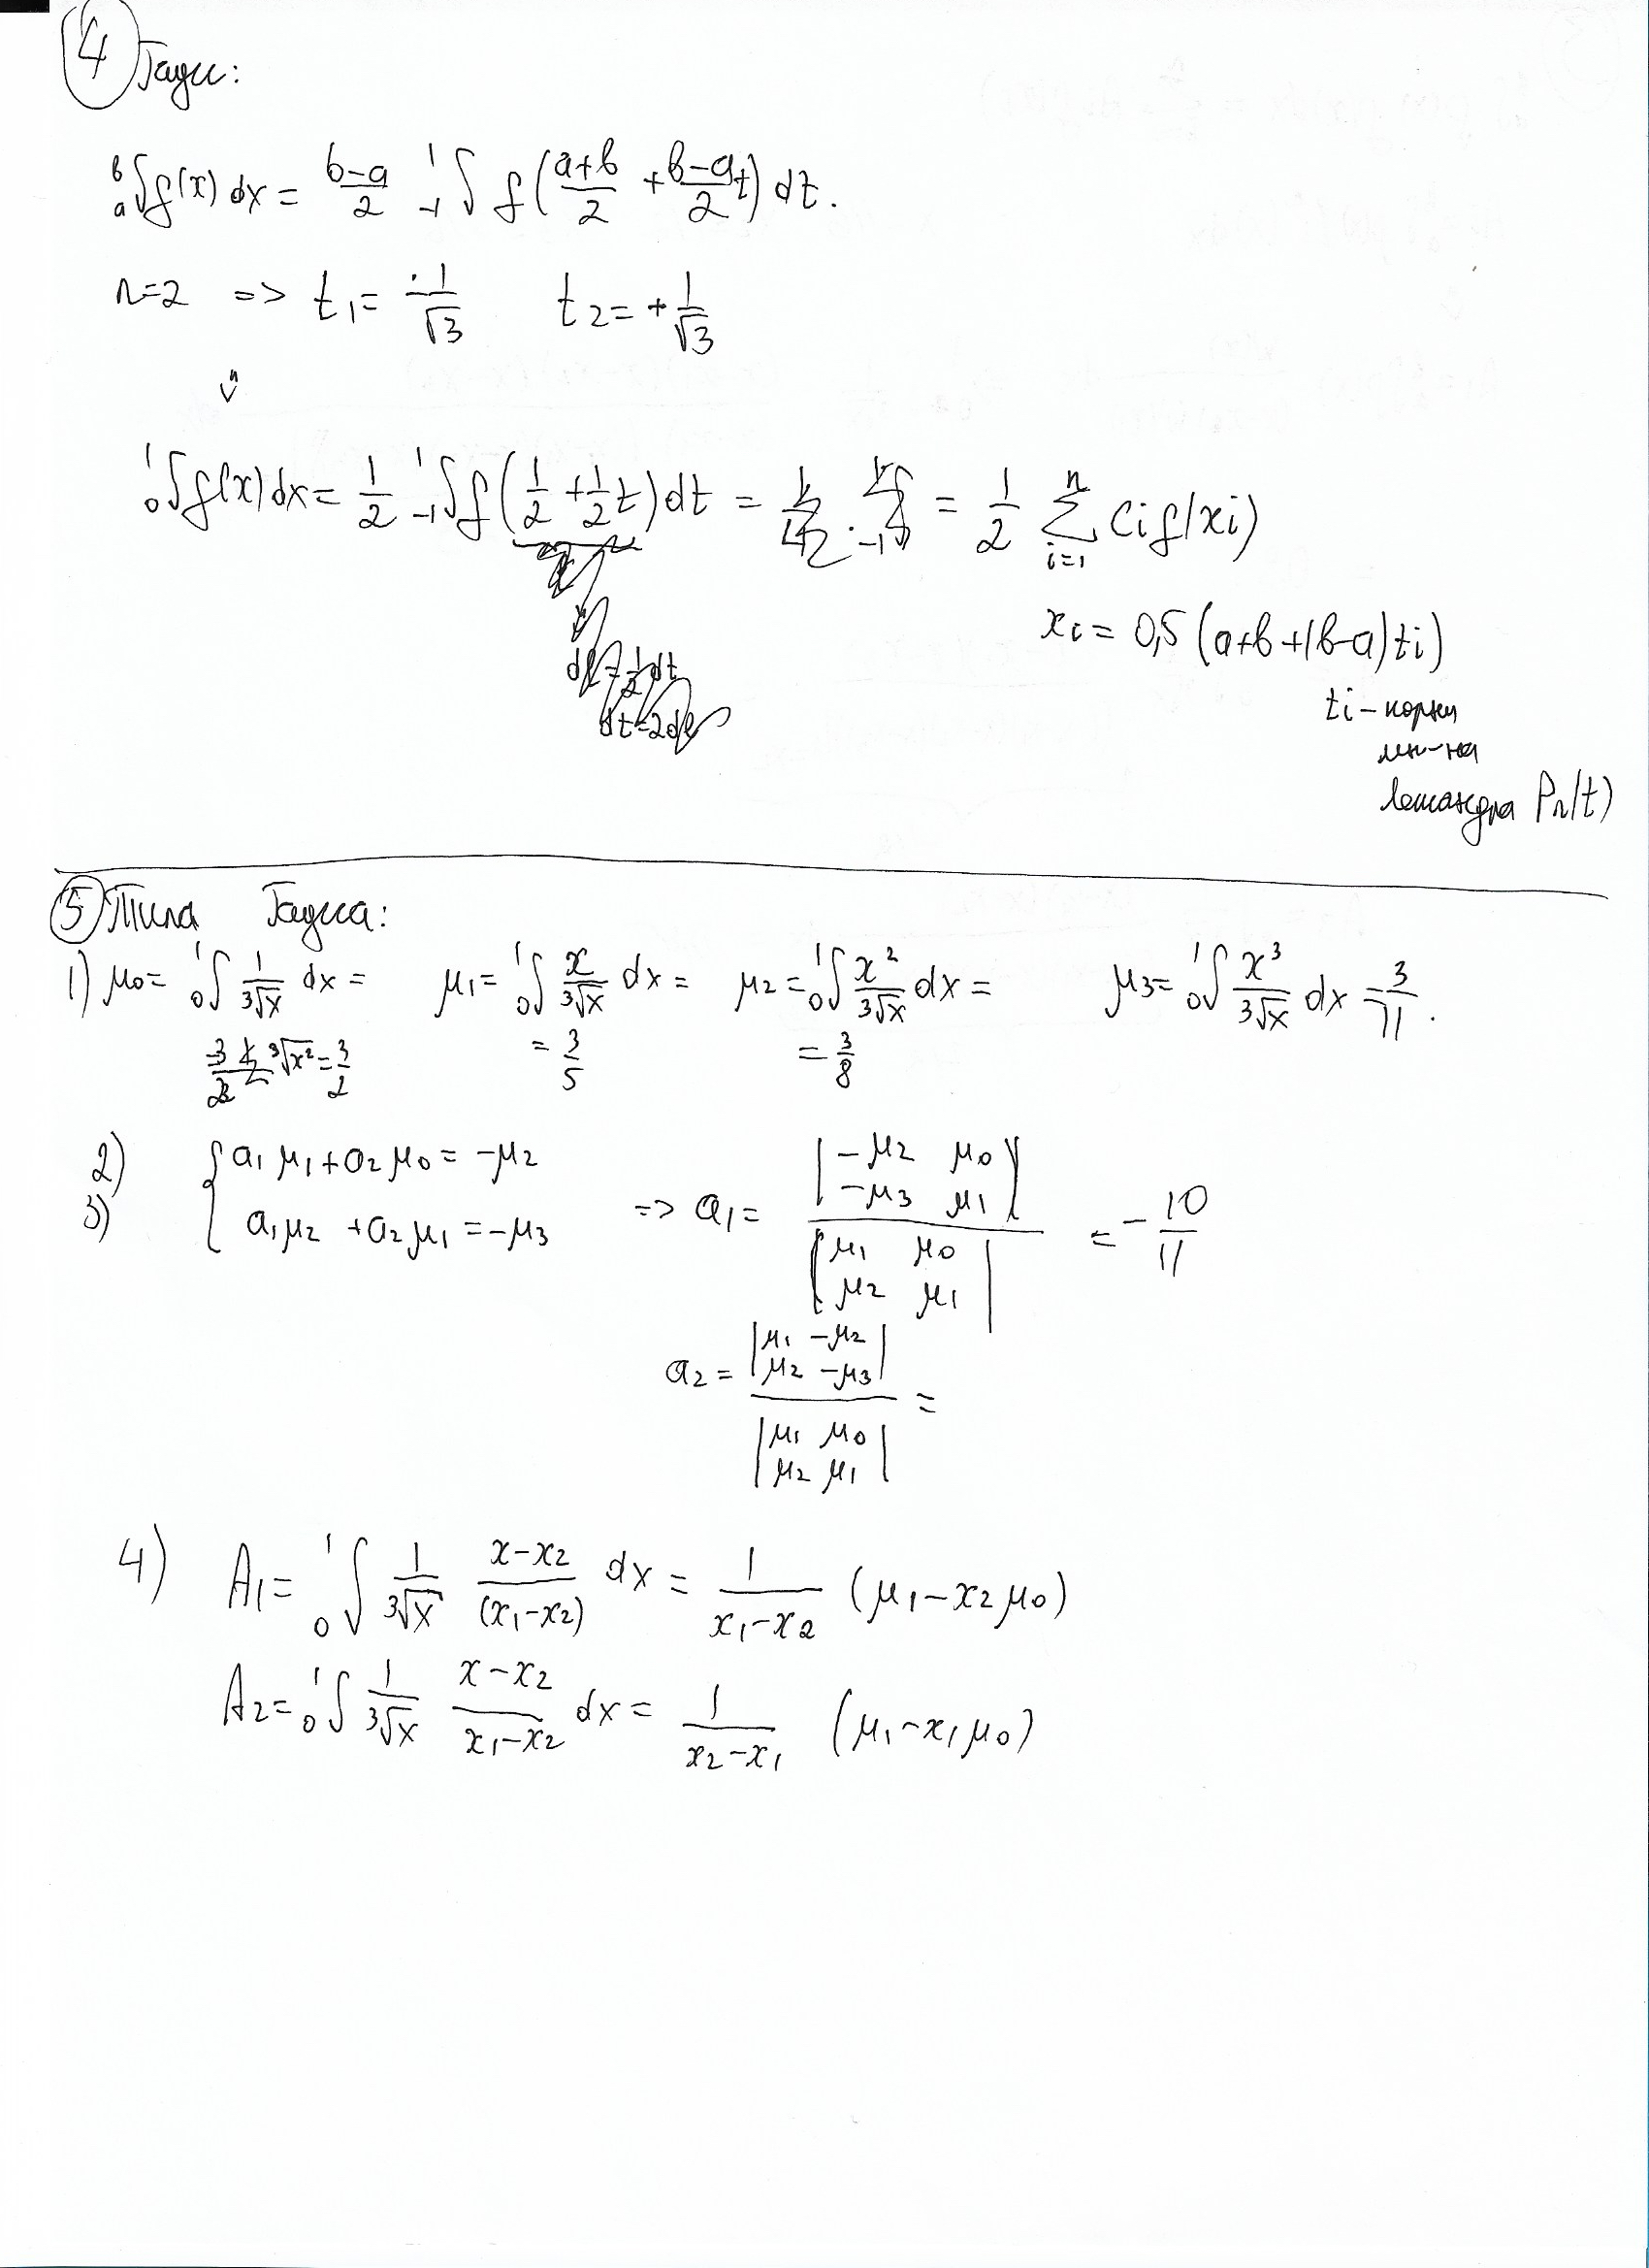 4 Гаусс:
b a ∫ f(x) dx = b-a/2 1 -1 ∫ f(a+b/2 + b-a/2 t) dt.
n=2 => t1 = -1/√3 t2 = +1/√3
1 0 ∫ f(x) dx = 1/2 1 -1 ∫ f(1/2 + 1/2 t) dt = = 1/2 n Σ i=1 Ci f(xi)
xi = 0,5 (a+b+(b-a)ti)
ti - корни
мн-на
Лежандра Pn(t)
5 Типа Гаусса:
1) μ0 = 1 0 ∫ 1/3√x dx = μ1 = 1 0 ∫ x/3√x dx = μ2 = 1 0 ∫ x²/3√x dx = μ3 = 1 0 ∫ x³/3√x dx = 3/11.
3√x² = 3/2 = 3/5 = 3/8
2) { a1 μ1 + a2 μ0 = -μ2
3) a1 μ2 + a2 μ1 = -μ3 => a1 = |-μ2 μ0 -μ3 μ1| / |μ1 μ0 μ2 μ1| = -10/11
a2 = |μ1 -μ2 μ2 -μ3| / |μ1 μ0 μ2 μ1| =
4) A1 = 1 0 ∫ 1/3√x x-x2/(x1-x2) dx = 1/x1-x2 (μ1-x2 μ0)
A2 = 1 0 ∫ 1/3√x x-x2/x1-x2 dx = 1/x2-x1 (μ1-x1 μ0)